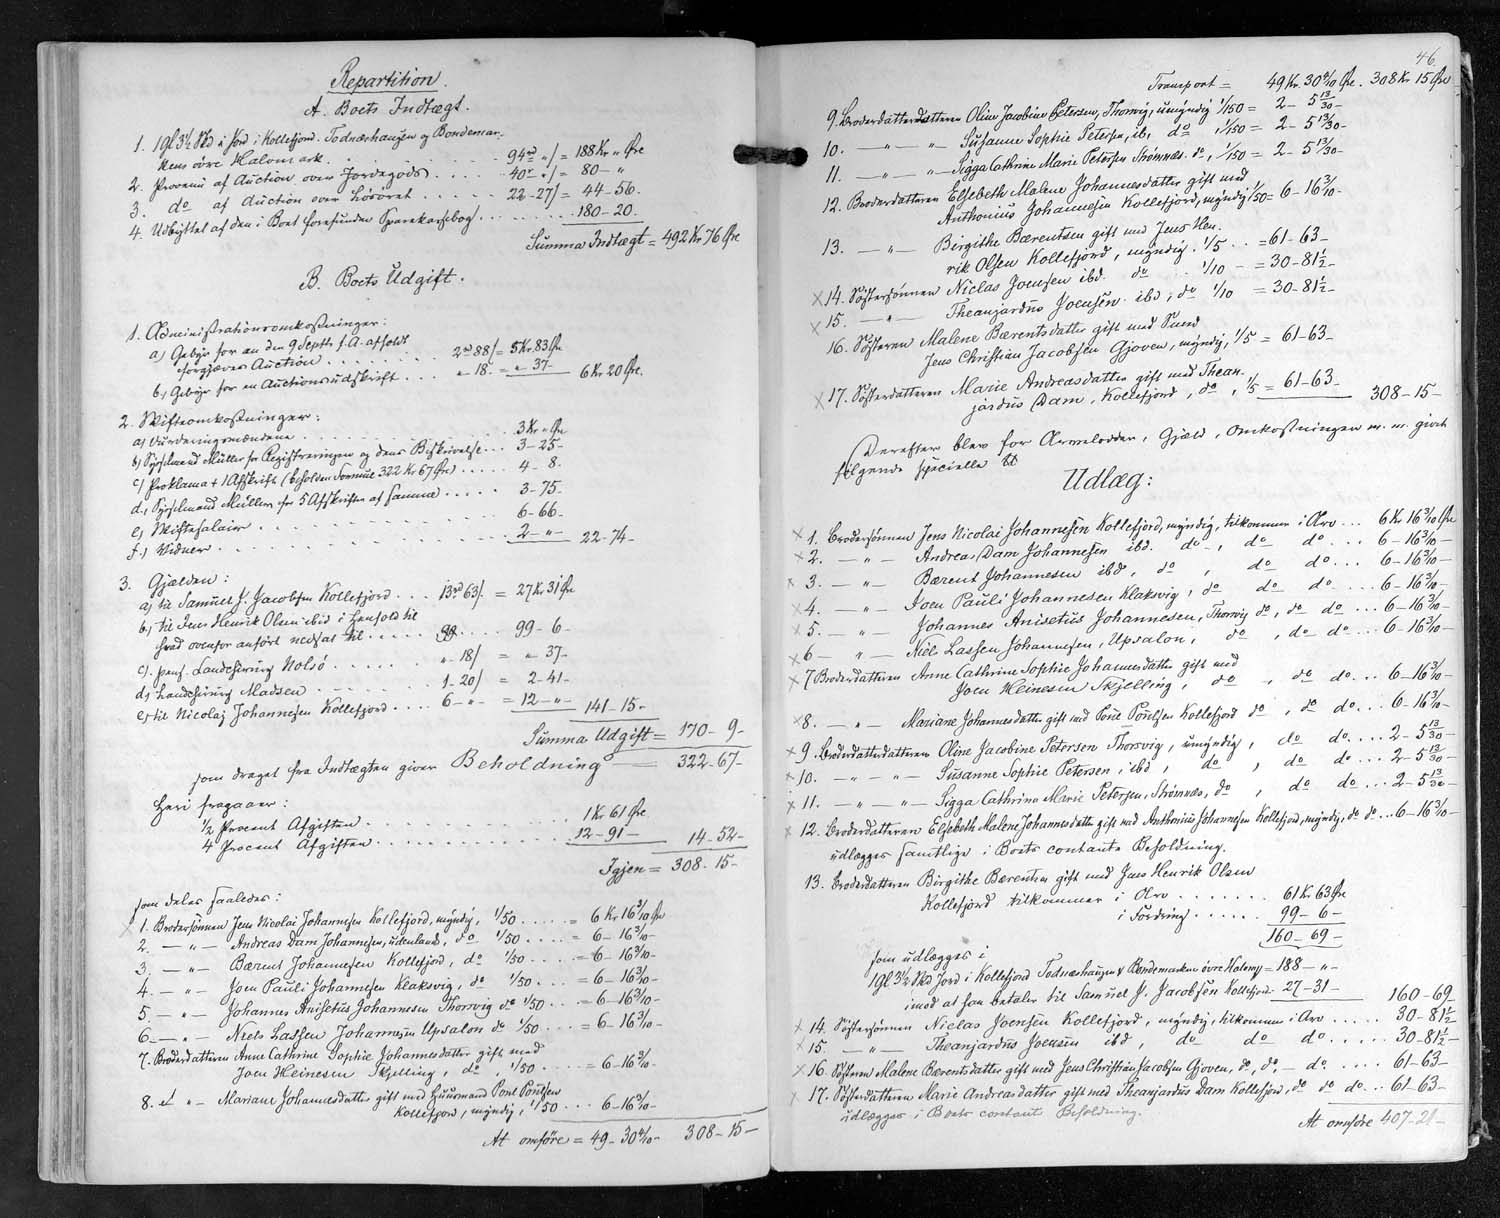 Repartition.
A. Boets Indtægt.
1. 19 gl 3½ Skd Jord i Kollefjord, Todnæshaugen og Bondemar-
kens övre Halvmark . . . . 94rd „ / = 188 Kr „ Øre
2. Provenu af Auction over Jordegods . . . . 40rd „ / = 80 – „
3. do af Auction over Lösöret . . . . 22–27/ = 44–56.
4. Udbyttet af den i Boet forefunden Sparekassebog . . . . 180–20.
Summa Indtægt = 492 Kr 76 Øre
B. Boets Udgift.
1. Administrationsomkostninger:
a) Gebyr for en den 9 Septbr f. A. afholdt
forgjæves Auction . . . . 2rd 88/ = 5 Kr. 83 Øre
b) Gebyr for en Auctionsudskrift . . . „ 18. = „ 37– 6 Kr 20 Øre.
2. Skifteomkostninger:
a) Vurderingsmændene . . . . 3 Kr „ Øre
b) Sysselmand Müller for Registreringen og dens Beskrivelse . . . 3–25–
c) Proklama + 1 Afskrift (beholden Formue 322 Kr 67 Øre) . . . . 4–8.
d) Sysselmand Müller for 5 Afskrifter af Samma . . . . 3–75–
e) Skiftesalair . . . . 6–66–
f) Vidner . . . . 2–„– 22–74–
3. Gjælden:
a) til Samuel J. Jacobsen Kollefjord . . . 13rd 63/ = 27 Kr 31 Øre
b) til Jens Henrik Olsen ibid i Henhold til
hvad ovenfor anført nedsat til . . . . 99–6–
c) pens. Landchirurg Nolsö . . . . „ 18/ = „ 37–
d) Landchirurg Madsen . . . . 1–20/ = 2–41–
e) til Nicolaj Johannesen Kollefjord . . . . 6–„– = 12–„– 141–15–
Summa Udgift = 170–9–
som draget fra Indtægten giver Beholdning = 322–67–
Heri fragaaer:
½ Procent Afgiften . . . . 1 Kr 61 Øre
4 Procent Afgiften . . . . 12–91– 14–52–
Igjen = 308–15–
som deles saaledes:
1. Brodersönnen Jens Nicolai Johannesen Kollefjord, myndig, 1/50 . . . . = 6 Kr 16 3/10 Øre
2. –„– Andreas Dam Johannesen, udenlands, do 1/50 . . . . = 6–16 3/10–
3. –„– Bærent Johannesen Kollefjord, do 1/50 . . . . = 6–16 3/10–
4. –„– Joen Pauli Johannesen Klaksvig, do 1/50 . . . . = 6–16 3/10–
5. –„– Johannes Anisetus Johannesen Thorsvig do 1/50 . . . = 6–16 3/10–
6. –„– Niels Lassen Johannesen Upsalon do 1/50 . . . = 6–16 3/10–
7. Broderdatteren Anne Cathrine Sophie Johannesdatter gift med
Joen Heinesen Skjelling, do, 1/50 . . . = 6–16 3/10–
8. –„– Mariane Johannesdatter gift med Huusmand Poul Poulsen
Kollefjord, myndig, 1/50 . . . 6–16 3/10–
At omföre = 49–30 4/10– 308–15–
46.
Transport = 49 Kr. 30 4/10 Øre. 308 Kr 15 Øre
9. Broderdatterdatteren Oline Jacobine Petersen, Thorsvig, umyndig 1/150 = 2–5 13/30–
10. –„–„– Susanne Sophie Petersen, ib, do, 1/150 = 2–5 13/30–
11. –„–„– Sigga Cathrine Marie Petersen Strömnæs. do, 1/150 = 2–5 13/30–
12. Broderdatteren Elsebeth Malene Johannesdatter gift med
Anthonius Johannesen Kollefjord, myndig 1/50 = 6–16 3/10–
13. –„– Birgithe Bærentsen gift med Jens Hen-
rik Olsen Kollefjord, myndig. 1/5 . . . = 61–63–
14. Söstersönnen Niclas Joensen ibd. do . . 1/10 – = 30–81½–
15. –„– Theanjardus Joensen ibd, do 1/10 = 30–81½–
16. Sösteren Malene Bærentsdatter gift med Svend
Jens Christian Jacobsen Gjoven, myndig, 1/5 = 61–63–
17. Sösterdatteren Marie Andreasdatter gift med Thean-
jardus Dam, Kollefjord, do, 1/5 = 61–63– 308–15–
Derefter blev for Arvelodder, Gjæld, Omkostninger m. m. givet
fölgende specielle
Udlæg:
1. Brodersönnen Jens Nicolai Johannesen Kollefjord, myndig, tilkommer i Arv . . . 6 Kr 16 3/10 Øre
2. –„– Andrea Dam Johannesen ibd. do–, do do . . . 6–16 3/10–
3. –„– Bærent Johannesen ibd, do, do do . . . 6–16 3/10–
4. –„– Joen Pauli Johannesen Klaksvig, do do do . . . 6–16 3/10–
5. –„– Johannes Anisetus Johannesen, Thorsvig do, do do . . . 6–16 3/10–
6 –„– Niels Lassen Johannesen, Upsalon, do, do do . . . 6–16 3/10–
7 Broderdatteren Anne Cathrine Sophie Johannesdatter gift med
Joen Heinesen Skjelling, do, do do . . . 6–16 3/10–
8. –„– Mariane Johannesdatter gift med Poul Poulsen Kollefjord do, do do . . . 6–16 3/10–
9. Broderdatterdatteren Oline Jacobine Petersen Thorsvig, umyndig, do do . . . . 2–5 13/30–
10. –„–„– Susanne Sophie Petersen, ibd, do, do do . . . 2–5 13/30–
11. –„–„– Sigga Cathrine Marie Petersen, Strömnæs, do, do do . . . 2–5 13/30–
12. Broderdatteren Elsebeth Malene Johannesdatter gift med Anthonius Johannesen Kollefjord, myndig, do do . . . 6–16 3/10–
udlægges samtlige i Boets contante Beholdning.
13. Broderdatteren Birgithe Bærentsen gift med Jens Henrik Olsen
Kollefjord tilkommer i Arv . . . . . . 61 Kr 63 Øre
i Fordring . . . . . . 99–6–
160–69–
som udlægges i
19 gl 3½ Skd Jord i Kollefjord Todnæshaugen & Bondemarken övre Halvm = 188–„–
imod at han betaler til Samuel J. Jacobsen Kollefjord 27–31– 160–69
14. Söstersönnen Niclas Joensen Kollefjord, myndig, tilkommer i Arv . . . . . 30–81½
15. –„– Theanjardus Joensen ibd, do do do . . . . . 30–81½–
16. Sösteren Malene Bærentsdatter gift med Jens Christian Jacobsen Gjoven, do, do, – do . . . . 61–63–
17. Sösterdatteren Marie Andreasdatter gift med Theanjardus Dam Kollefjord, do do do . . 61–63–
udlægges i Boets contante Beholdning.
At omföre 407–21–